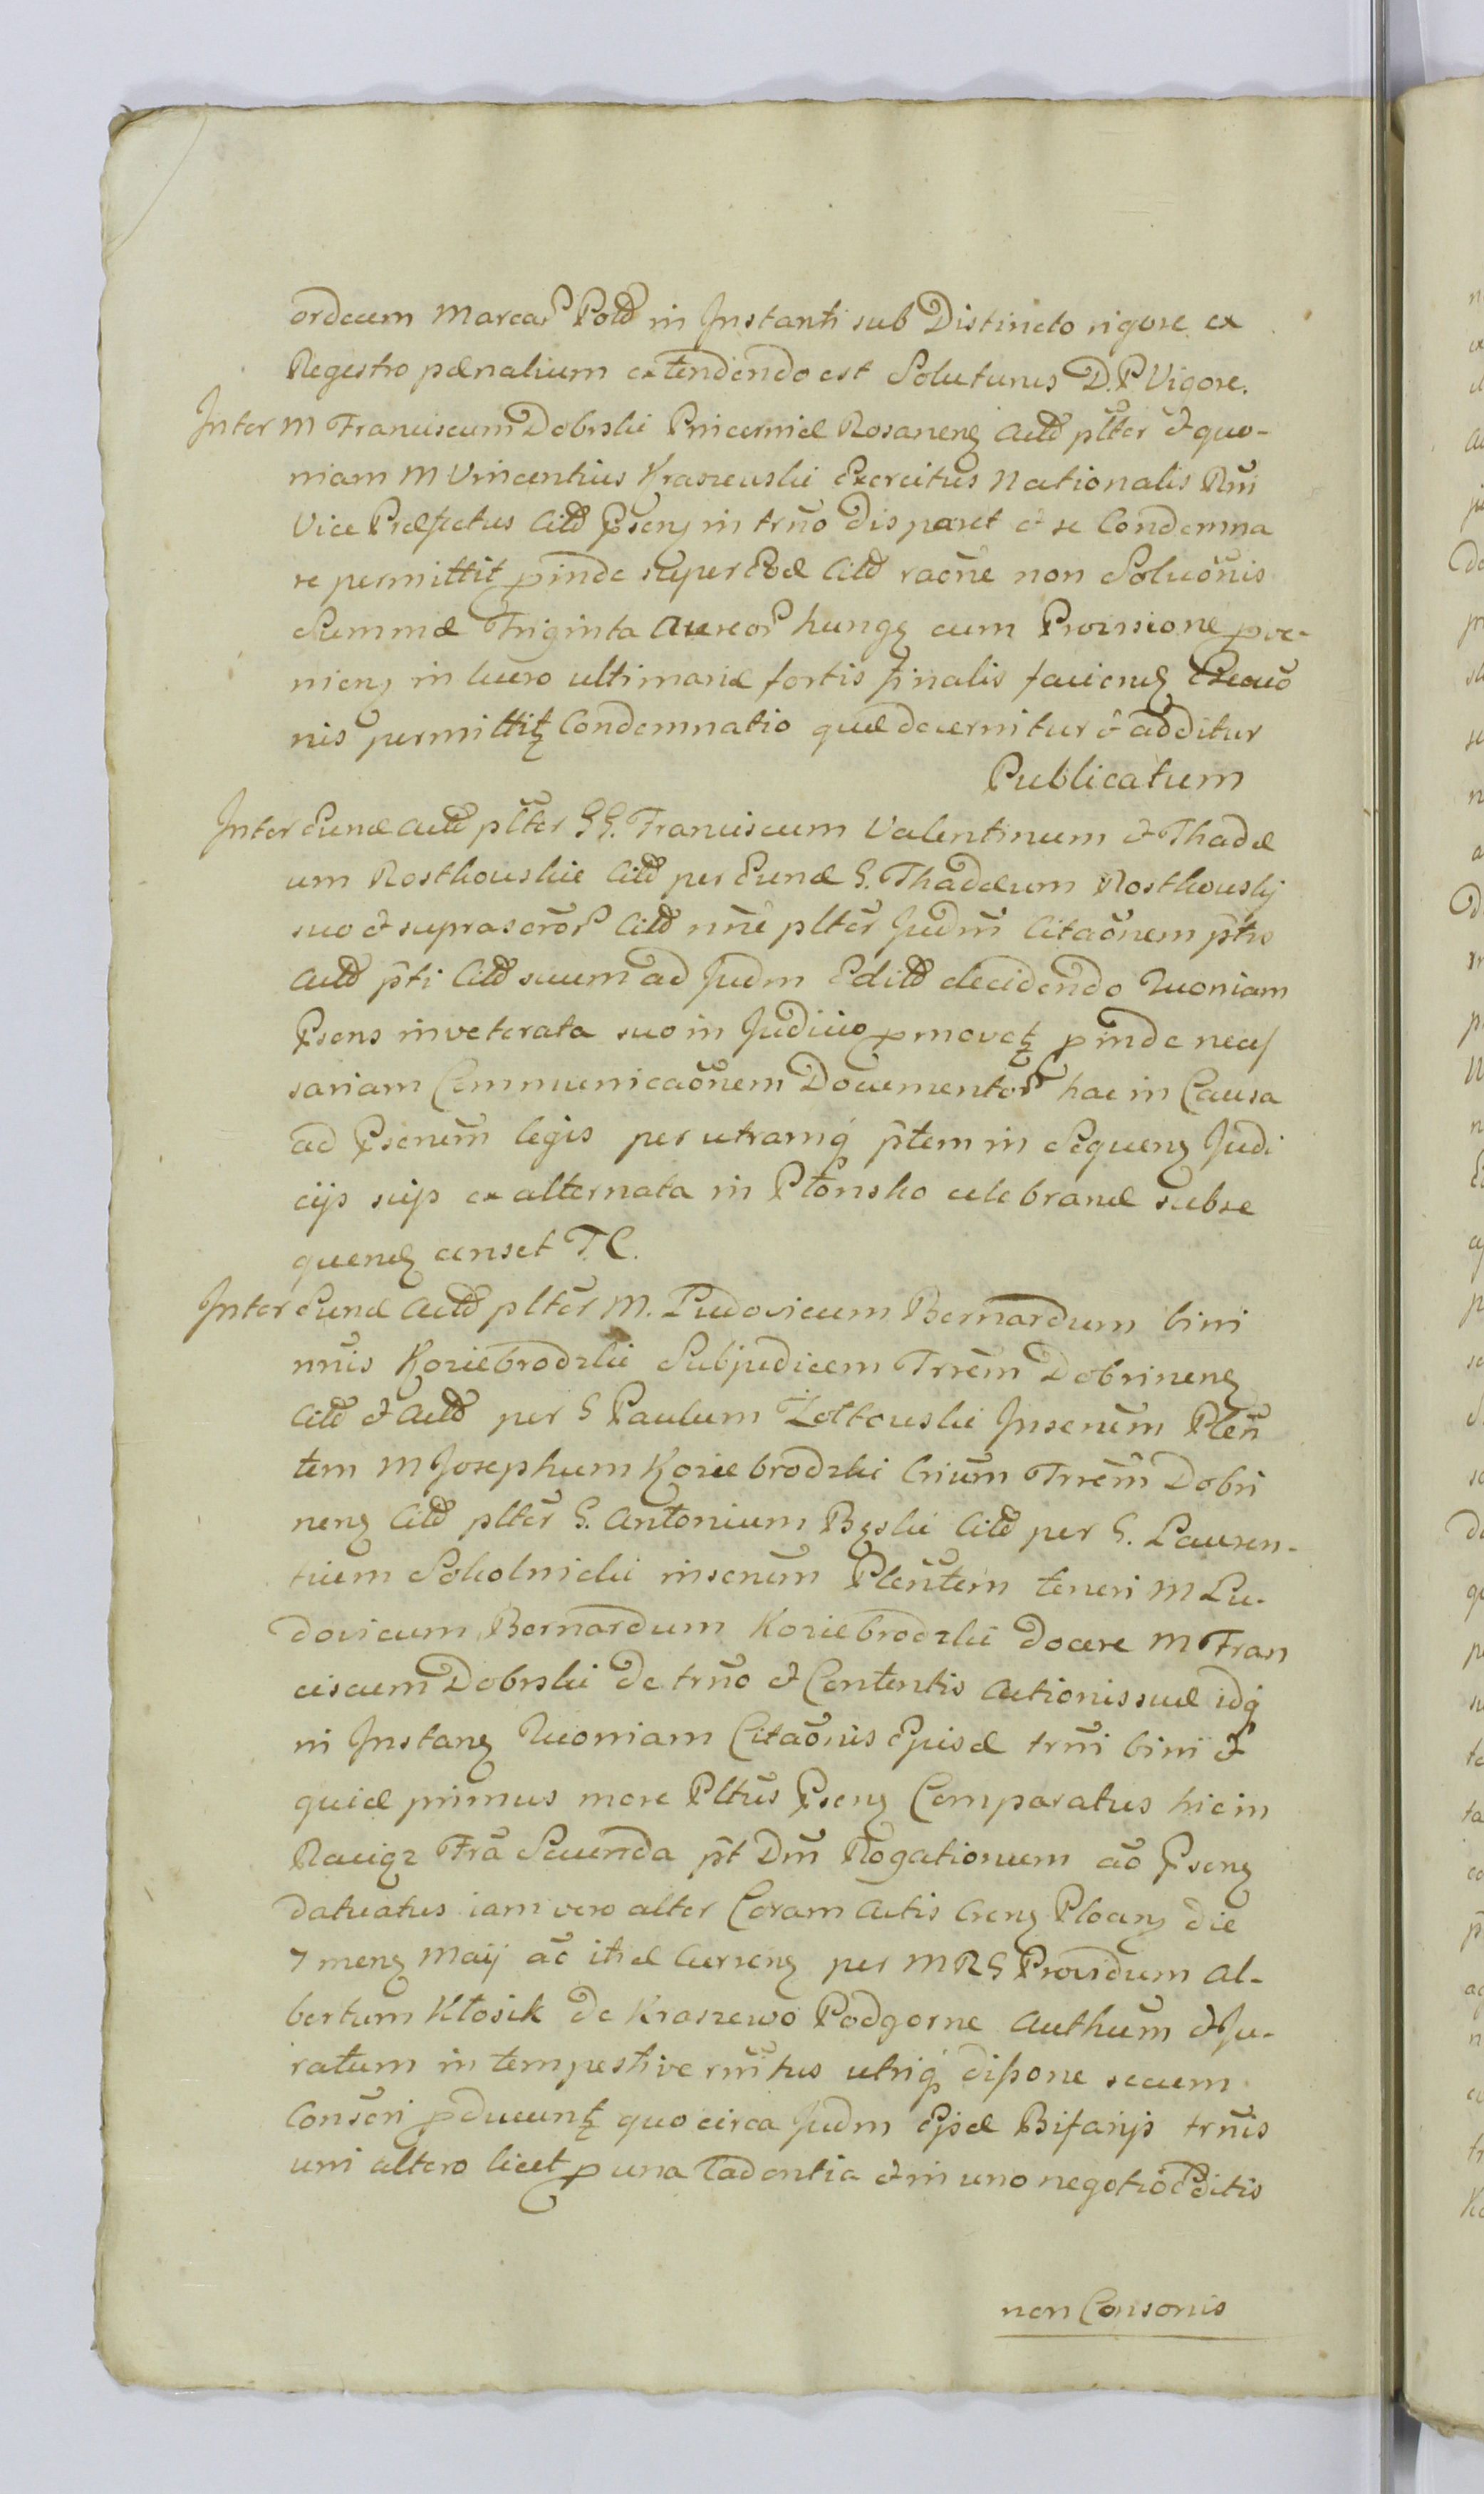 ordecem Marcar Pold in Instanti sub Distincto rigore ex
Regestro pænalium extendendo est Soluturus D.P Vigore.
Inter M Franciscum Dobrski Pincernæ Rosanens Actd pltēr & quo-
niam M Vincentius Kraszewski Exercitus Nationalis Rni
Vice Præfectus Citd Psens in trno disparet & se Condemna
re permittit pinde super Eod Citd racne non Soluōnis
Summæ Triginta Aureor hungs cum Provisione prove-
niens in lucro ultimariæ sortis pinalis faciend Execuō
nis permittitr Condemnatio quæ decernitur & additur
Publicatum
Inter Eund Actd pltēr GG. Franciscum Valentinum & Thadæ
um Rostkowskie Citd per Eund G. Thadæum Rostkowskj
suo & suprascror Citd nne pltēr Judm Citaōnem pro
Actd pti Citd suum ad Judm Editd decidendo Quoniam
Psens inveterata suo in Judicio pmovetr pinde neces
sariam Communicaōnem Documentor hac in Causa
ad Psenem legis per utramq ptem in Sequens Judi
cijs suis ex alternata in Płonsko celebrand subse
quend censet T.C.
Inter Eund Actd pltēr M. Ludovicum Bernardum bini
nnis Koziebrodzki Subjudicem Trrem Dobrinens
Citd & Actd per G Paulum Żółtowski Insenem Plen
tem M Josephum Koziebrodzki Crium Trrem Dobri
nens Citd pltēr G. Antonium Bęski Citd per G. Lauren-
tium Sokolnicki insenem Plentem teneri M Lu-
dovicum Bernardum Koziebrodzki docere M Fran
ciscum Dobrski de trno & Contentis Actionis suæ idq
in Instans Quoniam Citaōnis Ejusd trni bini &
quid primus more Pltus Psens Comparatus hic in
Raciąz Fra Secunda pt Dm Rogationum ao Psens
datuatus iam vero alter Coram Actis Crens Plocens die
7 mens Maij ao itid Currens per MRG Providum Al-
bertum Kłosik de Kraszewo Podgorne Authum & Ju-
ratum in tempestive rnitus utriq dispone secum
Conseri pducuntr quo circa Judm Ejsd Bifarijs trnis
uni altero licet p una Cadentia & in uno negotio Editis
non Consonis